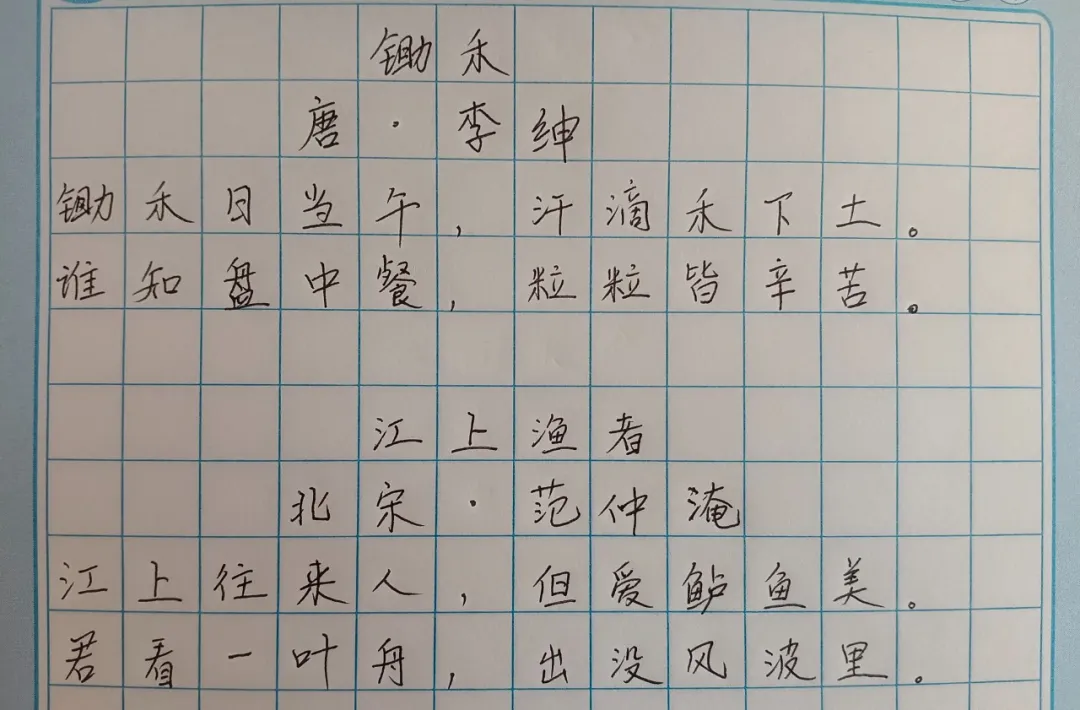 锄禾
唐·李绅
锄禾日当午，汗滴禾下土。
谁知盘中餐，粒粒皆辛苦。
江上渔者
北宋·范仲淹
江上往来人，但爱鲈鱼美。
君看一叶舟，出没风波里。